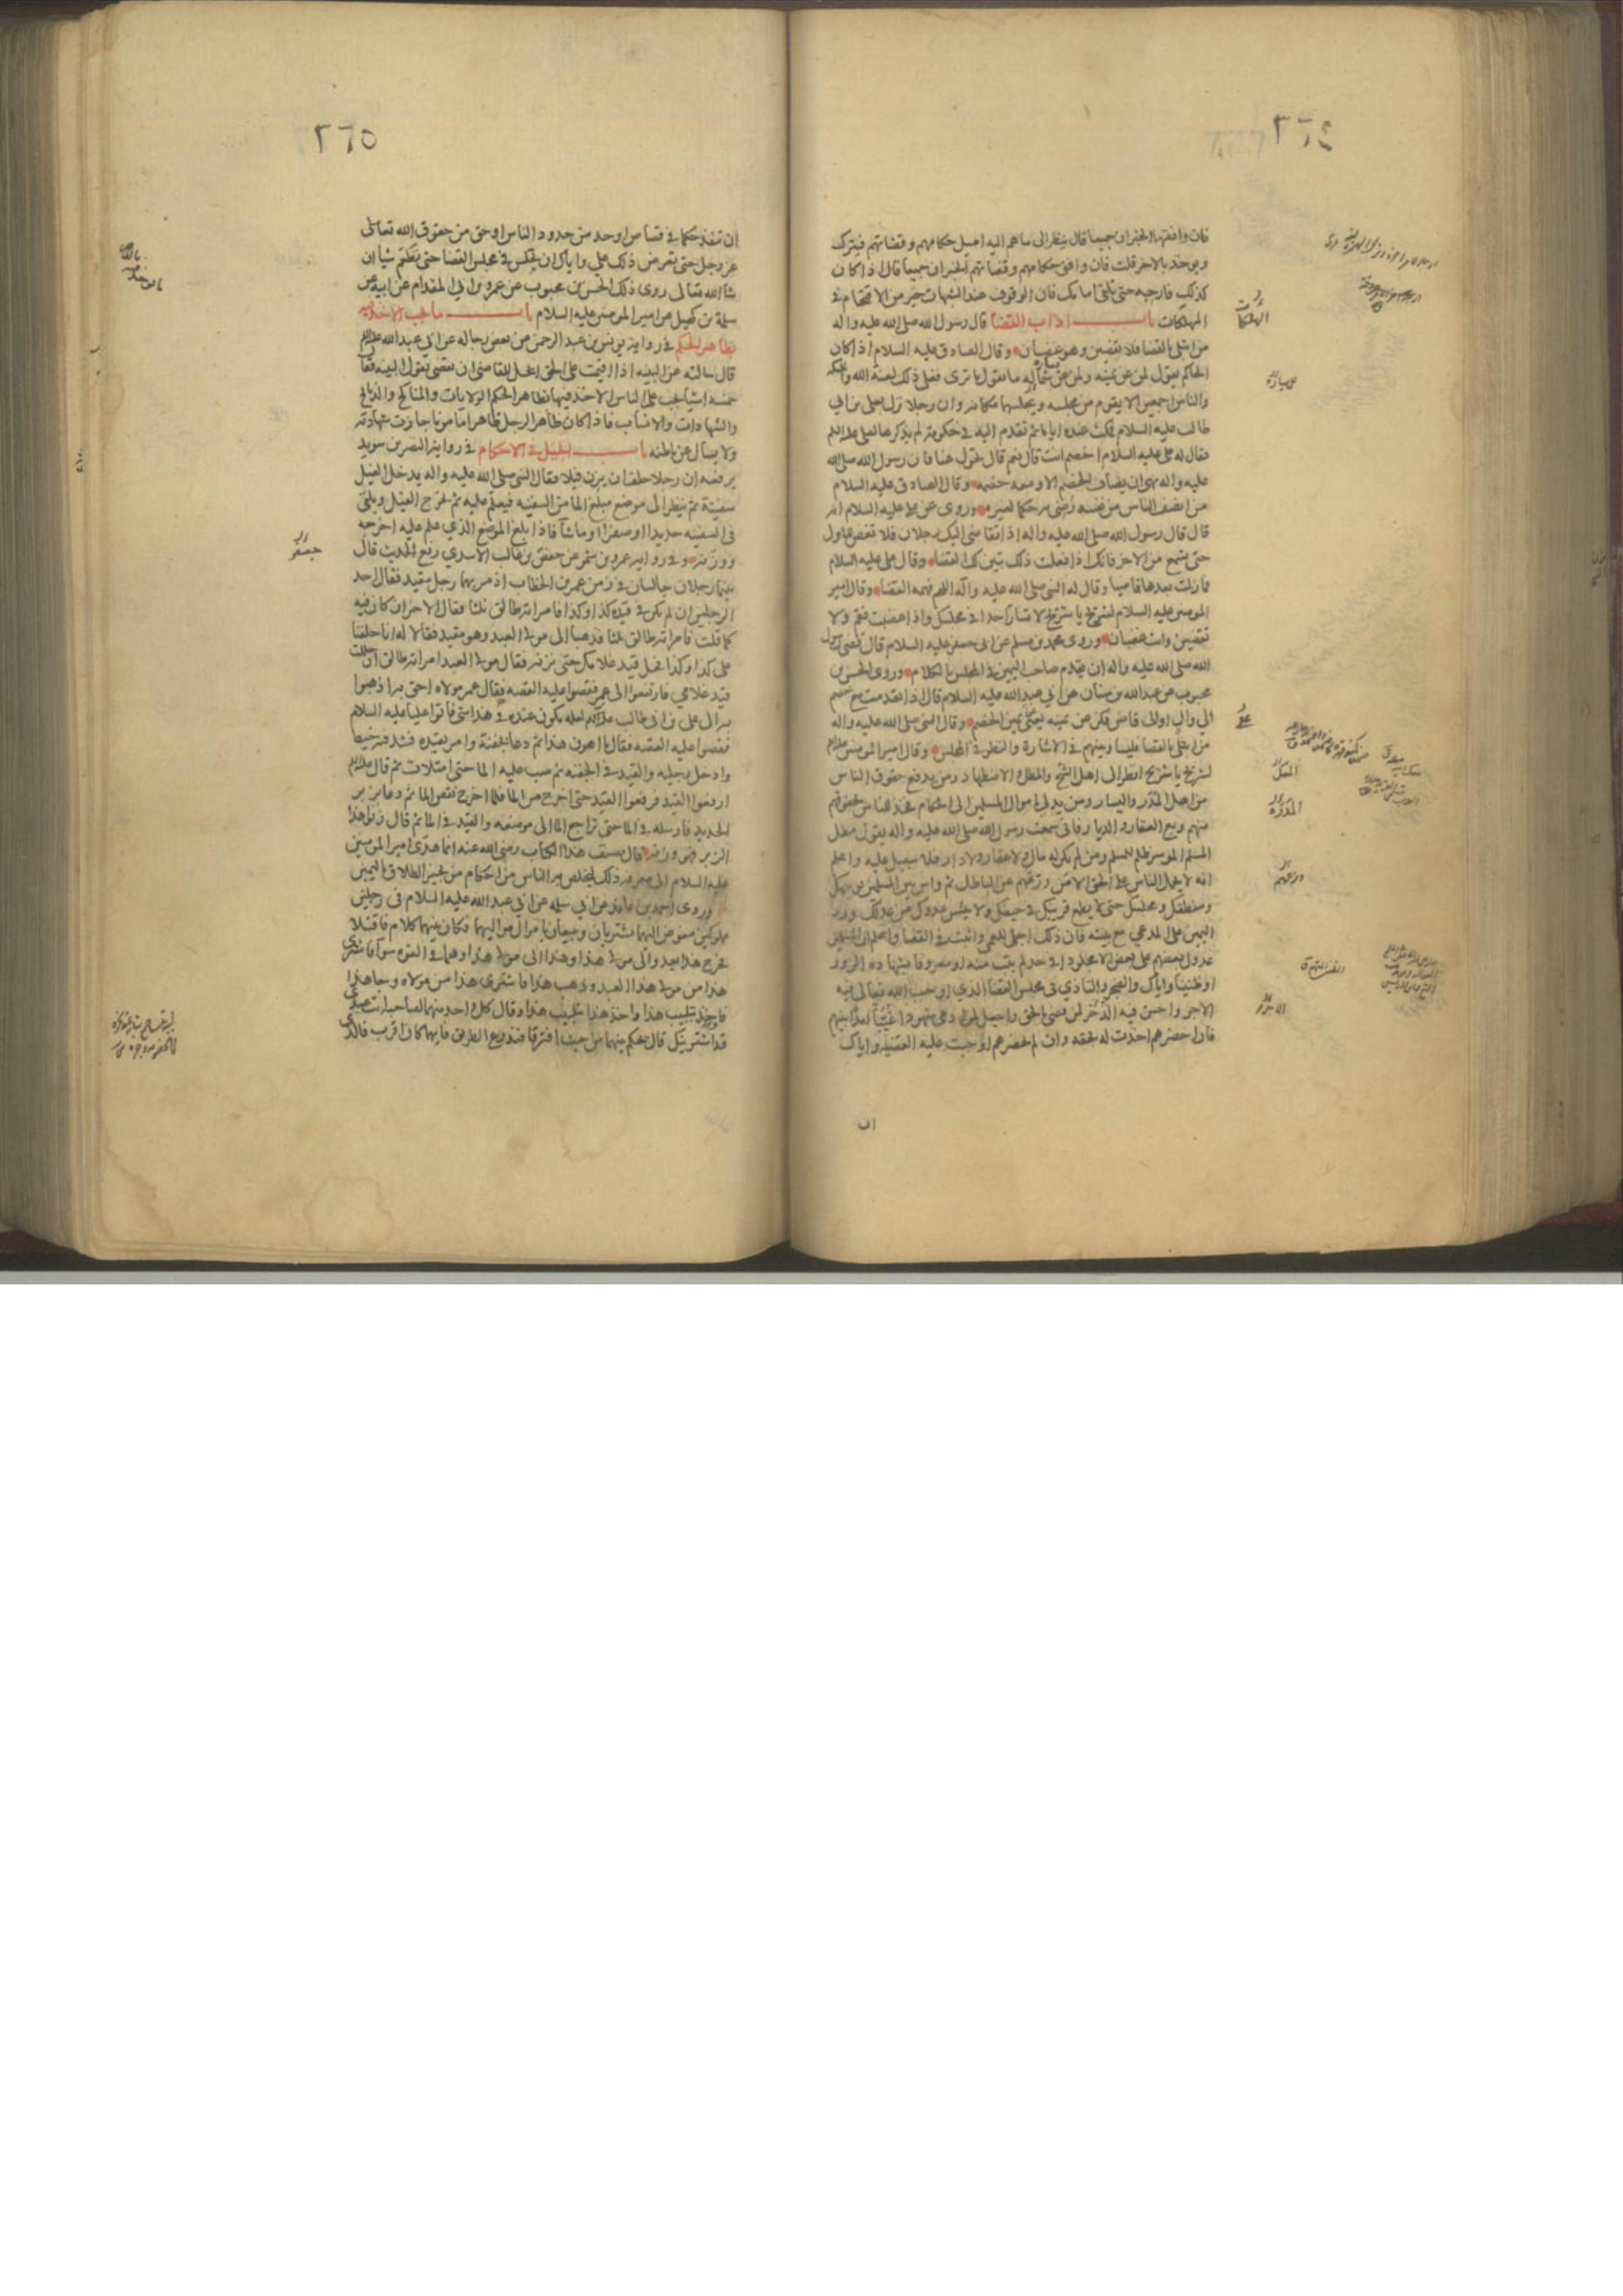 ٣٦٤
فان وافقها الخبران جميعا قال ينظر الى ما هم اليه اميل حكامهم وقضاتهم فيترك
ويوخذ بالاخر قلت فان وافق حكامهم وقضاتهم الخبران جميعا قال اذا كان
كذلك فارجه حتى تلقى امامك فان الوقوف عند الشبهات خير من الاقتحام في
المهلكات باب اداب القضا قال رسول الله صلى الله عليه واله
من ابتلى بالقضا فلا يقضين وهو غضبان وقال الصادق عليه السلام اذا كان
الحاكم يقول لمن عن يمينه ولمن عن يساره ما تقول ما ترى فعلى ذلك لعنة الله والملئكة
والناس اجمعين الا يقوم من مجلسه ويجلسهما مكانه وان رجلا نزل بعلي بن ابي
طالب عليه السلام فمكث عنده اياما ثم تقدم اليه في حكومة لم يذكرها لعلي عليه السلم
فقال له علي عليه السلام اخصم انت قال نعم قال تحول عنا فان رسول الله صلى الله
عليه واله نهى ان يضاف الخصم الا ومعه خصمه وقال الصادق عليه السلام
من انصف الناس من نفسه رضي به حكما لغيره وروى عن علي عليه السلام انه
قال قال رسول الله صلى الله عليه واله اذا تقاضى اليك رجلان فلا تقض للاول
حتى تسمع من الاخر فانك اذا فعلت ذلك تبين لك القضا وقال علي عليه السلام
فما زلت بعدها قاضيا وقال له النبي صلى الله عليه واله اللهم فهمه القضا وقال امير
المومنين عليه السلام لشريح يا شريح لا تسار احدا في مجلسك واذا غضبت فقم ولا
تقضين وانت غضبان وروى محمد بن مسلم عن ابي جعفر عليه السلام قال قضى رسول
الله صلى الله عليه واله ان يقدم صاحب اليمين في المجلس بالكلام وروى الحسن بن
محبوب عن عبدالله بن سنان عن ابي عبدالله عليه السلام قال اذا تقدمت مع خصم
الى وال او الى قاض فكن عن يمينه يعني يمين الخصم وقال النبي صلى الله عليه واله
من ابتلي بالقضا فليساو بينهم في الاشارة والنظر في المجلس وقال امير المومنين عليه السلم
لشريح يا شريح انظر الى اهل الشح والمطل والاضطهاد ومن يدفع حقوق الناس
من اهل المدر واليسار ومن يدلي باموال المسلمين الى الحكام فخذ للناس بحقوقهم
منهم وبع العقار والديار فاني سمعت رسول الله صلى الله عليه واله يقول مطل
المسلم الموسر ظلم للمسلم ومن لم يكن له مال ولا عقار ولا دار فلا سبيل عليه واعلم
انه لا يحمل الناس على الحق الا من وزعهم عن الباطل ثم واس بين المسلمين بوجهك
ومنطقك ومجلسك حتى لا يطمع قريبك في حيفك ولا ييئس عدوك من عدلك ورد
اليمين على المدعي مع بينته فان ذلك اجلى للعمى واثبت في القضا واعلم ان المسلمين
عدول بعضهم على بعض الا مجلودا في حد لم يتب منه او معروفا بشهادة الزور
او ظنينا واياك والضجر والتاذي في مجلس القضا الذي اوجب الله تعالى فيه
الاجر واحسن فيه الذخر لمن قضى بالحق واجعل لمن ادعى شهودا غيبا امدا بينهم
فان احضرهم اخذت له بحقه وان لم يحضرهم اوجبت عليه القضية واياك
ان
المهلكات
٣٦٥
ان تنفذ حكما في قصاص او حد من حدود الناس او حق من حقوق الله تعالى
عز وجل حتى تعرض ذلك علي واياك ان تجلس في مجلس القضا حتى تطعم شيا ان
شا الله تعالى روى ذلك الحسن بن محبوب عن عمرو بن ابي المقدام عن ابيه عن
سلمة بن كهيل عن امير المومنين عليه السلام باب ما يجب الاخذ فيه
بظاهر الحكم في رواية يونس بن عبد الرحمن عن بعض رجاله عن ابي عبدالله عليه السلم
قال سالته عن البينه اذا اقيمت على الحق ايحل للقاضي ان يقضي بقول البينه فقال
خمسه اشيا يجب على الناس الاخذ فيها بظاهر الحكم الولايات والمناكح والذبائح
والشهادات والانساب فاذا كان ظاهر الرجل ظاهرا مامونا جازت شهادته
ولا يسال عن باطنه باب الحيل في الاحكام في رواية النضر بن سويد
يرفعه ان رجلا حلف ان يزن فيلا فقال النبي صلى الله عليه واله يدخل الفيل
سفينة ثم ينظر الى موضع مبلغ الما من السفينه فيعلم عليه ثم يخرج الفيل ويلقى
في السفينه حديدا او صفرا او ما شا فاذا بلغ الموضع الذي علم عليه اخرجه
ووزنه وفي رواية عمرو بن شمر عن جعفر بن غالب الاسدي رفع الحديث قال
بينما رجلان جالسان في زمن عمر بن الخطاب اذ مر بهما رجل مقيد فقال احد
الرجلين ان لم يكن في قيده كذا وكذا فامراته طالق ثلثا فقال الاخر ان كان فيه
كما قلت فامراته طالق ثلثا فذهبا الى مولى العبد وهو مقيد فقالا له انا حلفنا
على كذا وكذا فحل قيد غلامك حتى نزنه فقال مولى العبد امراته طالق ان حللت
قيد غلامي فارتفعوا الى عمر فقصوا عليه القصه فقال عمر مولاه احق به اذهبوا
به الى علي بن ابي طالب عليه السلم لعله يكون عنده في هذا شي فاتوا عليا عليه السلام
فقصوا عليه القصه فقال ما اهون هذا ثم دعا بجفنة وامر بقيده فشد فيه خيط
وادخل رجليه والقيد في الجفنه ثم صب عليه الما حتى امتلات ثم قال عليه السلم
ارفعوا القيد فرفعوا القيد حتى اخرج من الما فلما اخرج نقص الما ثم دعا بزبر
الحديد فارسله في الما حتى تراجع الما الى موضعه والقيد في الما ثم قال زنوا هذا
الزبر فهو وزنه قال مصنف هذا الكتاب رضي الله عنه انما هدى امير المومنين
عليه السلام الى معرفة ذلك ليخلص به الناس من احكام من يجيز الطلاق باليمين
وروى احمد بن عائذ عن ابي سلمه عن ابي عبدالله عليه السلام في رجلين
مملوكين مفوض اليهما يشتريان ويبيعان باموال مواليهما فكان بينهما كلام فاقتتلا
فخرج هذا يعدو الى مولى هذا وهذا الى مولى هذا وهما في القوه سوا فاشترى
هذا من مولى هذا العبد وذهب هذا فاشترى هذا من مولاه وجا هذا
فاخذ بتلبيب هذا واخذ هذا بتلبيب هذا وقال كل واحد منهما لصاحبه انت عبدي
قد اشتريتك قال يحكم بينهما من حيث افترقا فيذرع الطريق فايهما كان اقرب فالذي
جعفر